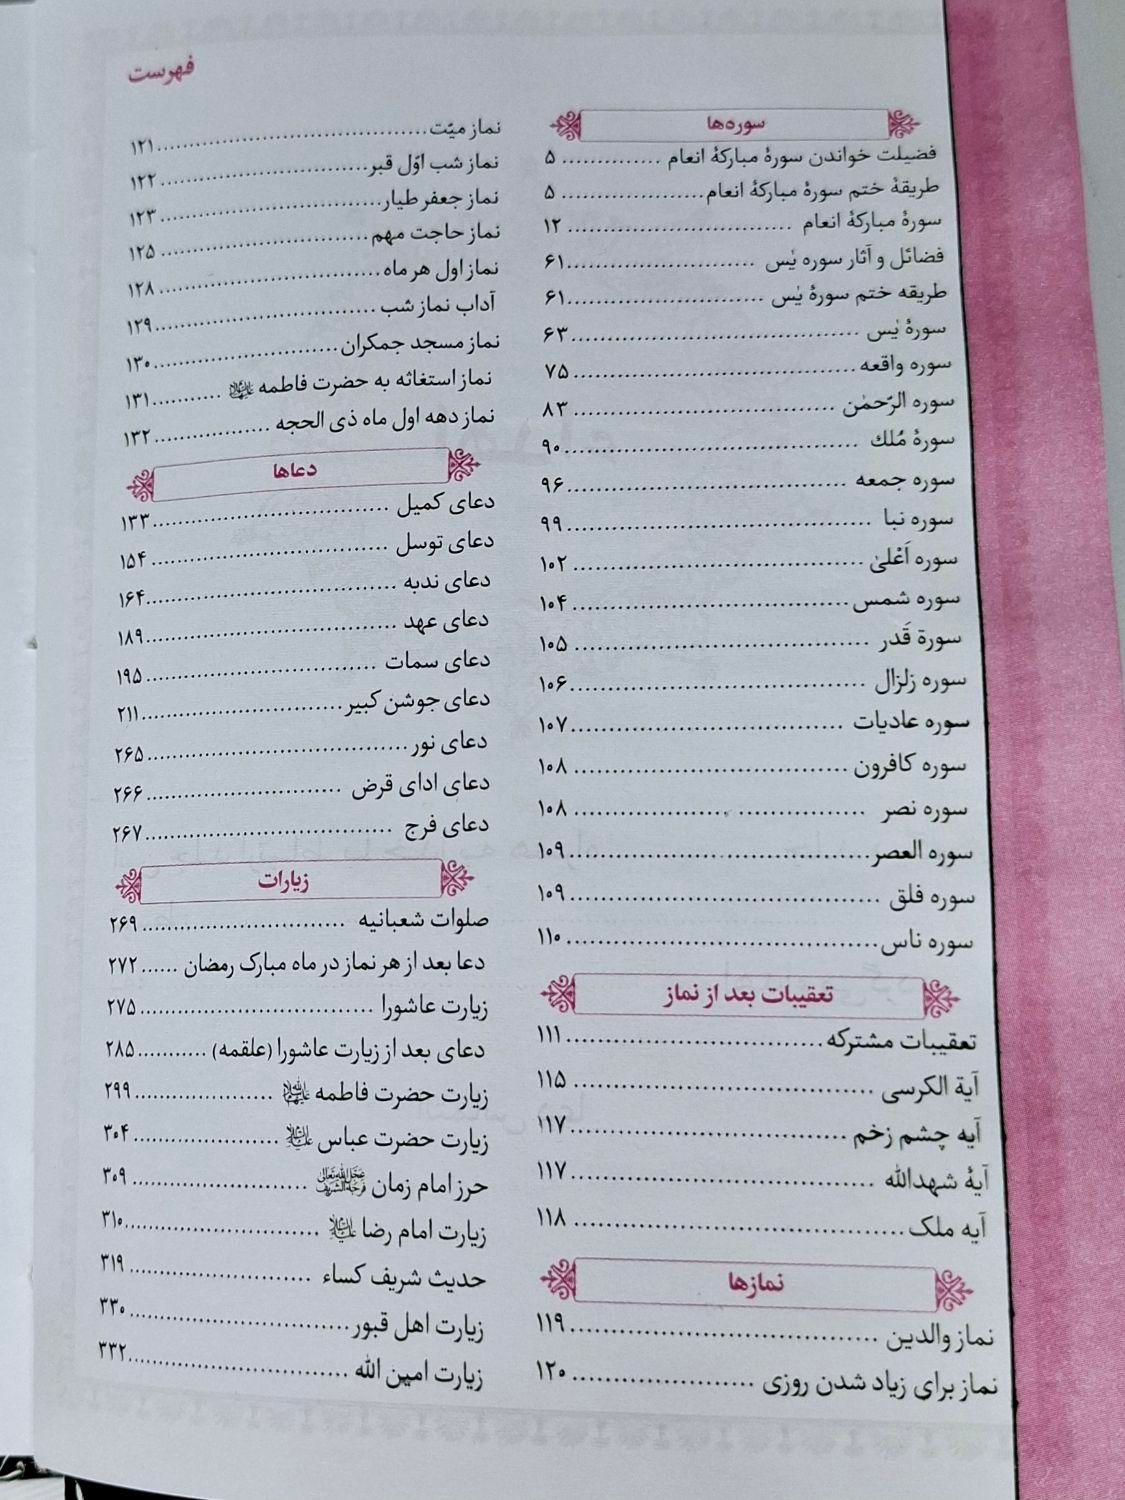 فهرست
سوره‌ها
فضیلت خواندن سورهٔ مبارکهٔ انعام ............. ۵
طریقهٔ ختم سورهٔ مبارکهٔ انعام .................. ۵
سورهٔ مبارکهٔ انعام ............................. ۱۲
فضائل و آثار سوره یٰس ......................... ۶۱
طریقه ختم سورهٔ یٰس .......................... ۶۱
سورهٔ یٰس ...................................... ۶۳
سوره واقعه ..................................... ۷۵
سوره الرّحمٰن .................................. ۸۳
سورهٔ مُلك ...................................... ۹۰
سوره جمعه .................................... ۹۶
سوره نبا ........................................ ۹۹
سوره اَعْلیٰ ..................................... ۱۰۲
سوره شمس .................................... ۱۰۴
سورة قَدر ...................................... ۱۰۵
سوره زلزال ..................................... ۱۰۶
سوره عادیات ................................... ۱۰۷
سوره کافرون ................................... ۱۰۸
سوره نصر ...................................... ۱۰۸
سوره العصر .................................... ۱۰۹
سوره فلق ....................................... ۱۰۹
سوره ناس ....................................... ۱۱۰
تعقیبات بعد از نماز
تعقیبات مشترکه ................................ ۱۱۱
آیة الکرسی ..................................... ۱۱۵
آیه چشم زخم .................................. ۱۱۷
آیهٔ شهدالله .................................... ۱۱۷
آیه ملک ......................................... ۱۱۸
نمازها
نماز والدین ..................................... ۱۱۹
نماز برای زیاد شدن روزی ....................... ۱۲۰
نماز میّت ........................................ ۱۲۱
نماز شب اوّل قبر ............................... ۱۲۲
نماز جعفر طیار ................................. ۱۲۳
نماز حاجت مهم ................................ ۱۲۵
نماز اول هر ماه ................................. ۱۲۸
آداب نماز شب .................................. ۱۲۹
نماز مسجد جمکران ............................ ۱۳۰
نماز استغاثه به حضرت فاطمه ........... ۱۳۱
نماز دهه اول ماه ذی الحجه .................. ۱۳۲
دعاها
دعای کمیل ..................................... ۱۳۳
دعای توسل .................................... ۱۵۴
دعای ندبه ...................................... ۱۶۴
دعای عهد ...................................... ۱۸۹
دعای سمات .................................... ۱۹۵
دعای جوشن کبیر .............................. ۲۱۱
دعای نور ........................................ ۲۶۵
دعای ادای قرض ............................... ۲۶۶
دعای فرج ....................................... ۲۶۷
زیارات
صلوات شعبانیه ................................ ۲۶۹
دعا بعد از هر نماز در ماه مبارک رمضان ...... ۲۷۲
زیارت عاشورا ................................... ۲۷۵
دعای بعد از زیارت عاشورا (علقمه) ........... ۲۸۵
زیارت حضرت فاطمه ..................... ۲۹۹
زیارت حضرت عباس ...................... ۳۰۴
حرز امام زمان ........................... ۳۰۹
زیارت امام رضا ............................ ۳۱۰
حدیث شریف کساء ........................... ۳۱۹
زیارت اهل قبور ................................ ۳۳۰
زیارت امین الله ................................. ۳۳۲